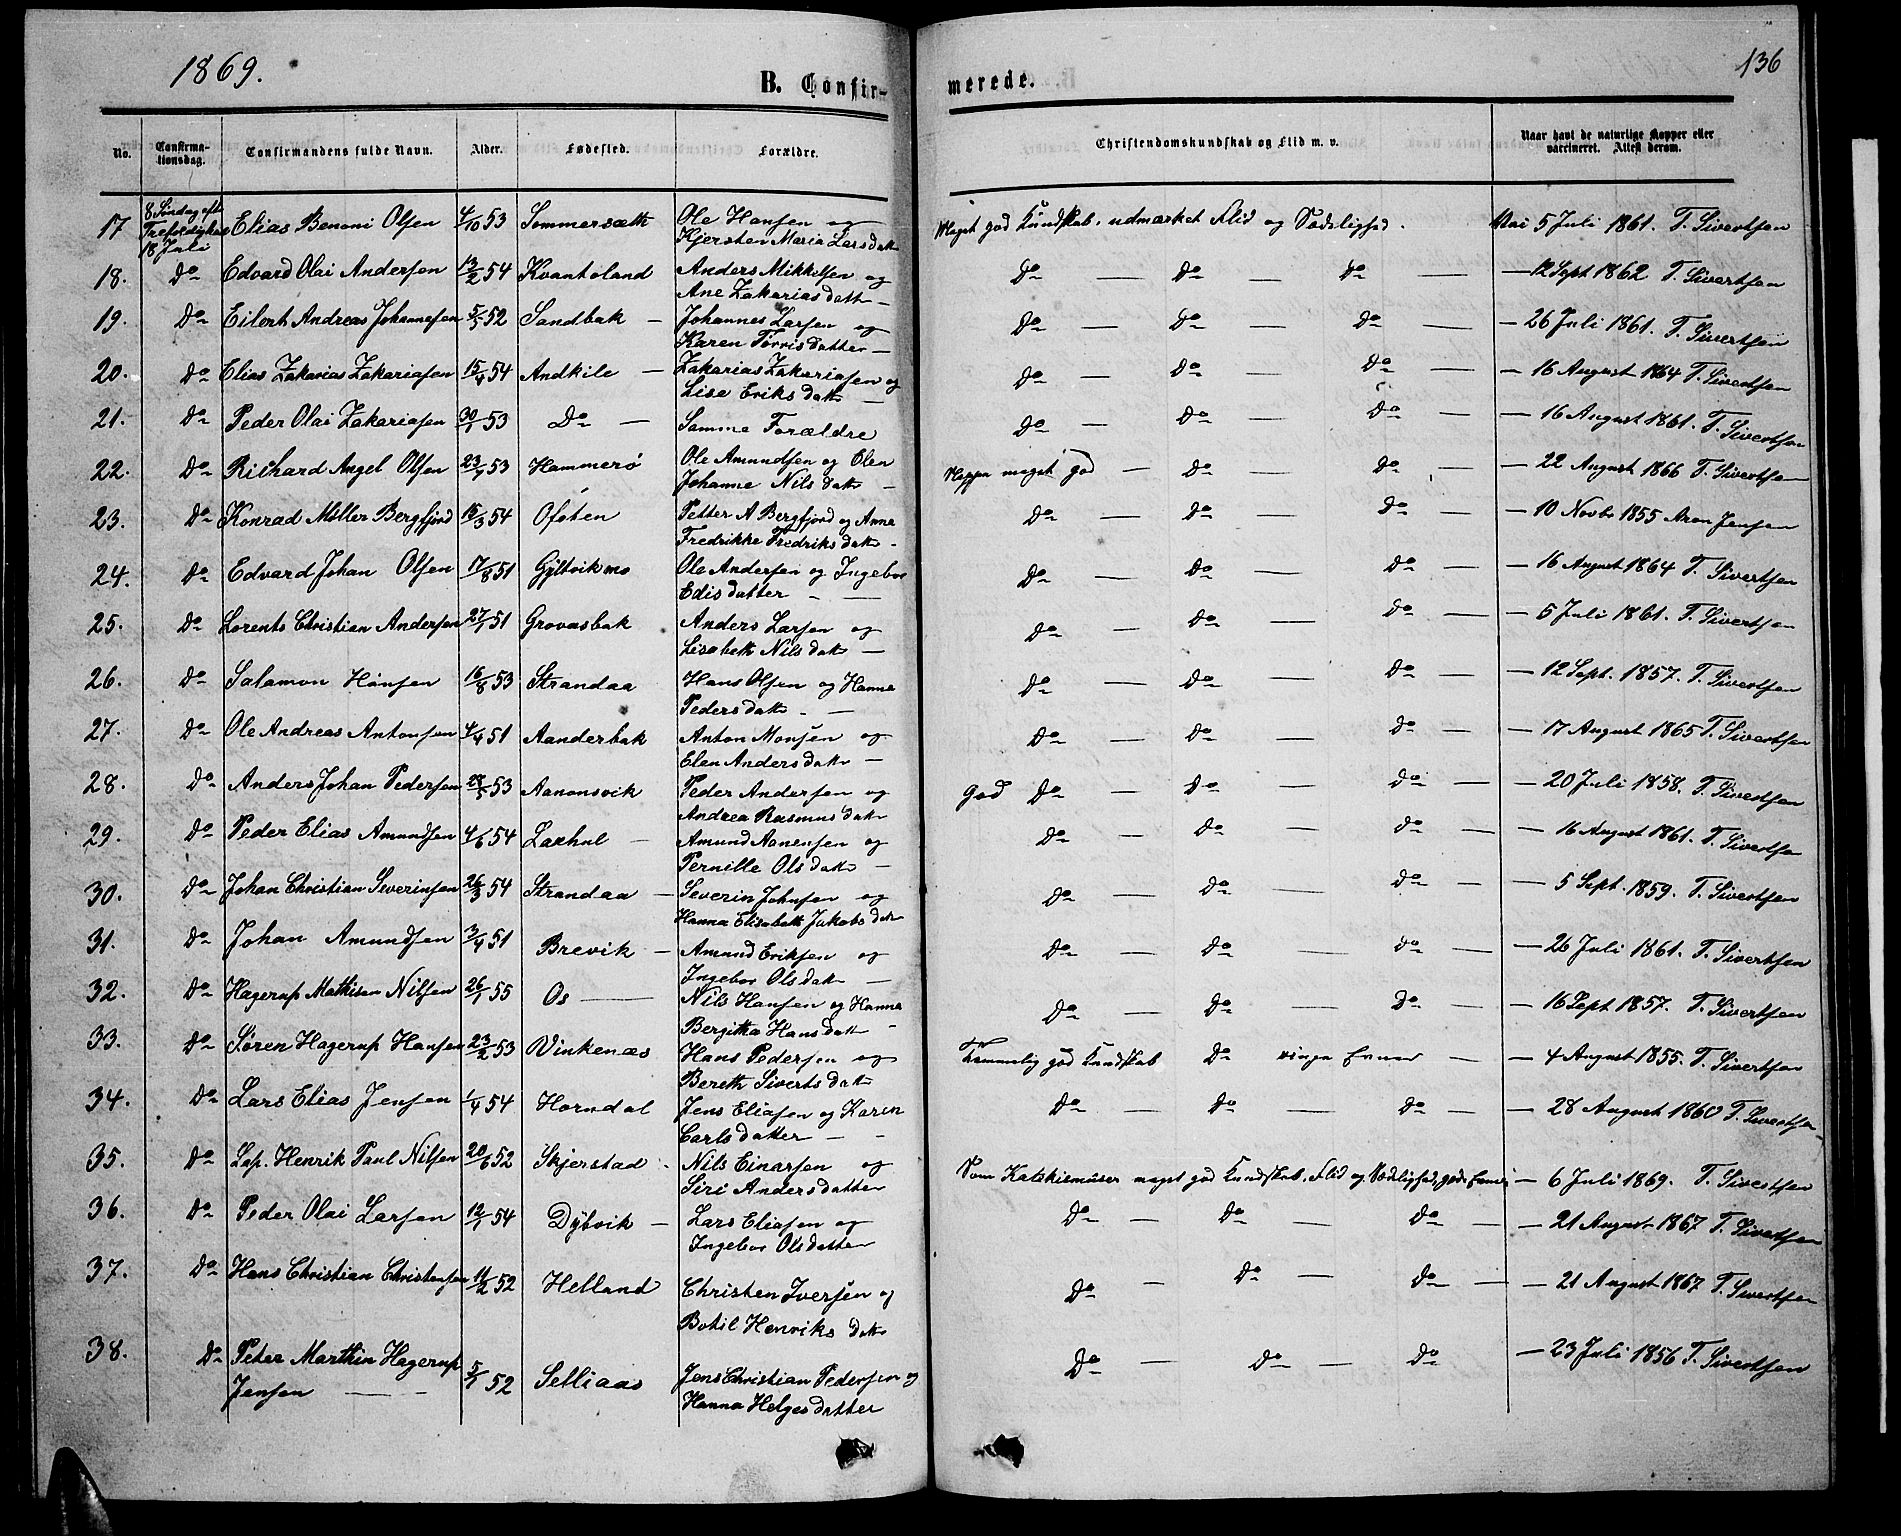 1869.
136
B. Confirmerede.
No. Confirmationsdag. Confirmandens fulde Navn. Alder. Fødested. Forældre. Christendomskundskab og Flid m. v. Naar havt de naturlige Kopper eller vaccineret. Attest derom.
17 8 Søndag eft. Trefoldighed 18 Juli Elias Benoni Olsen 4/10 53 Sommersæth Ole Hansen og Kjersten Maria Larsdatr Meget god Kundskab, udmærket Flid og Sædelighed. Vac 5 Juli 1861. T. Sivertsen
18. Do Edvard Olai Andersen 13/2 54 Kvantoland Anders Mikkelsen og Ane Zakariasdatr — Do — Do — Do — — 12 Sept 1862 T. Sivertsen
19. Do Eilert Andreas Johannesen 5/5 52 Sandbak — Johannes Larsen og Karen Torrisdatter — Do — Do — Do — — 26 Juli 1861. T. Sivertsen
20. Do Elias Zakarias Zakariasen 15/4 54 Andkile — Zakarias Zakariasen og Lise Eriksdatr — Do — Do — Do — — 16 August 1864 T. Sivertsen
21. Do Peder Olai Zakariasen 30/1 53 Do — Samme Forældre Do — Do — Do — — 16 August 1861. T. Sivertsen
22. Do Richard Angel Olsen 23/4 53 Hammerø Ole Amundsen og Elen Johanne Nilsdatr — Neppe meget god — Do — Do — — 22 August 1866 T. Sivertsen
23. Do Konrad Møller Bergfjord 16/3 54 Ofoten Petter A Bergfjord og Anne Fredrikke Fredriksdatr — Do — Do — Do — — 10 Novbr 1855 Aron Jensen
24. Do Edvard Johan Olsen 17/8 51 Gyltvikmo Ole Andersen og Ingebor Edisdatter — — Do — Do — Do — — 16 August 1864 T. Sivertsen
25. Do Lorents Christian Andersen 27/1 51 Grovasbak Anders Larsen og Lisabeth Nilsdatr — Do — Do — Do — — 5 Juli 1861. T. Sivertsen
26. Do Salamon Hansen 16/8 53 Strandaa Hans Olsen og Hanna Pedersdatr — — Do — Do — Do — — 12 Sept. 1857. T. Sivertsen
27. Do Ole Andreas Antonsen 4/4 51 Aanderbak Anton Monsen og Elen Andersdatr — Do — Do — Do — — 17 August 1865 T. Sivertsen
28. Do Anders Johan Pedersen 28/5 53 Aanonsvik Peder Andersen og Andrea Rasmusdatr God Do — Do — Do — — 20 Juli 1858. T. Sivertsen
29. Do Peder Elias Amundsen 4/6 54 Laxhul — Amund Aanensen og Pernille Olsdatr — Do — Do — Do — — 16 August 1861. T. Sivertsen
30. Do Johan Christian Severinsen 26/3 54 Strandaa — Severin Johnsen og Hanna Elisabeth Jakobsdatr Do — Do — Do — — 5 Sept. 1859. T. Sivertsen
31. Do Johan Amundsen 3/4 51 Brevik — Amund Eriksen og Ingebor Olsdatr — Do — Do — Do — — 26 Juli 1861. T. Sivertsen
32. Do Hagerup Mathisen Nilsen 26/1 55 Os — Nils Hansen og Hanna Bergitha Hansdatr — Do — Do — Do — — 16 Sept 1857. T. Sivertsen
33. Do Søren Hagerup Hansen 23/2 53 Vinkenæs Hans Pedersen og Bereth Sivertsdatr Temmelig god Kundskab Do ringe Evner — — 4 August 1855. T. Sivertsen
34. Do Lars Elias Jensen 1/4 54 Horndal Jens Eliasen og Karen Carlsdatter — — Do — Do — Do — — 28 August 1860 T. Sivertsen
35. Do Lap. Henrik Paul Nilsen 20/6 52 Skjerstad Nils Einarsen og Siri Andersdatter Som Katekismuser meget god Kundskab, Flid og Sædelighed, gode Evner — 6 Juli 1869. T. Sivertsen
36. Do Peder Olai Larsen 12/1 54 Dybvik — Lars Eliasen og Ingebor Olsdatter Do — Do — Do — — 21 August 1867 T. Sivertsen
37. Do Hans Christian Christensen 11/2 52 Helland Christen Iversen og Botil Henriksdatr Do — Do — Do — — 21 August 1867 T. Sivertsen
38. Do Peder Marthin Hagerup Jensen — — 5/1 52 Selliaas Jens Christian Pedersen og Hanna Helgesdatter Do — Do — Do — 23 Juli 1856 T. Sivertsen